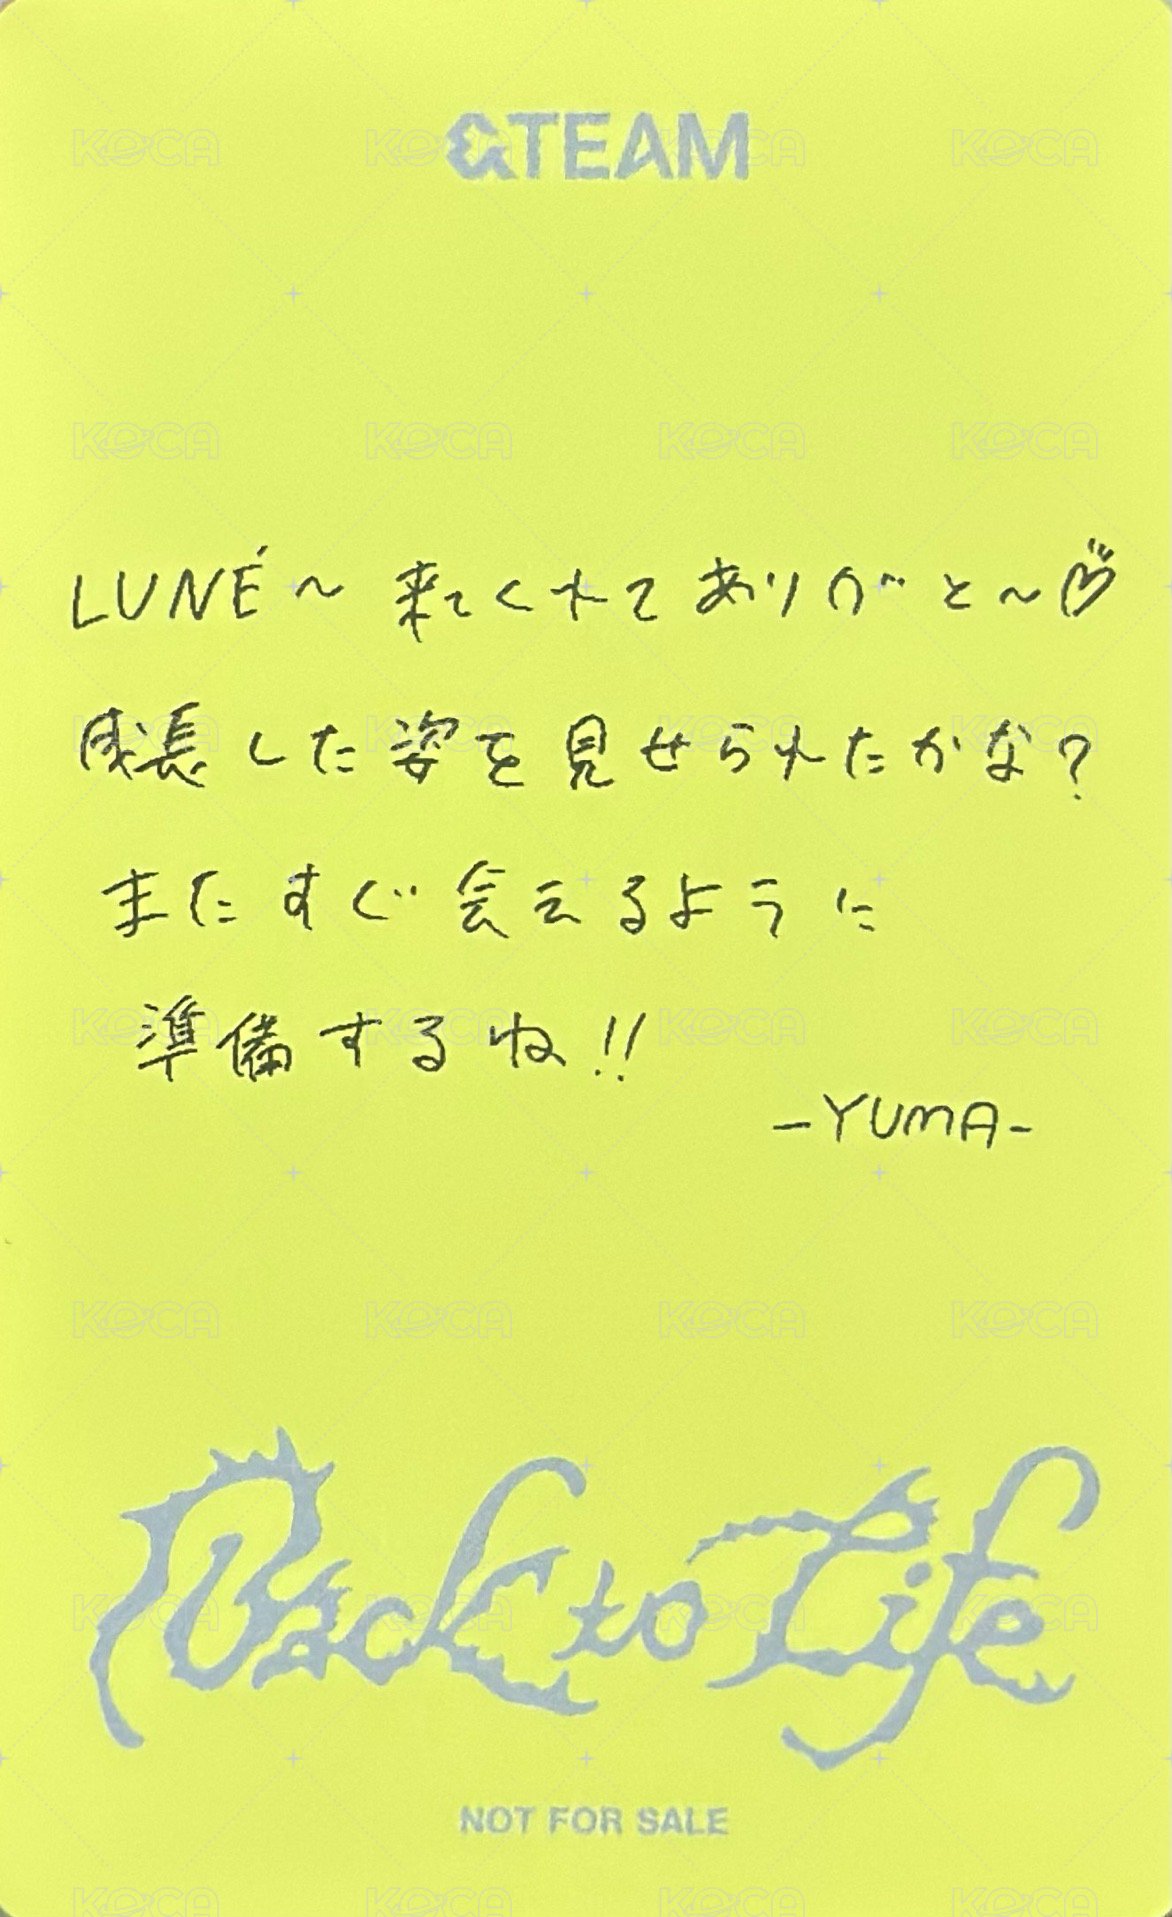 &TEAM
LUNÉ～ 来てくれてありがと～♡
成長した姿を見せられたかな?
またすぐ会えるように
準備するね!!
-YUMA-
Back to Life
NOT FOR SALE